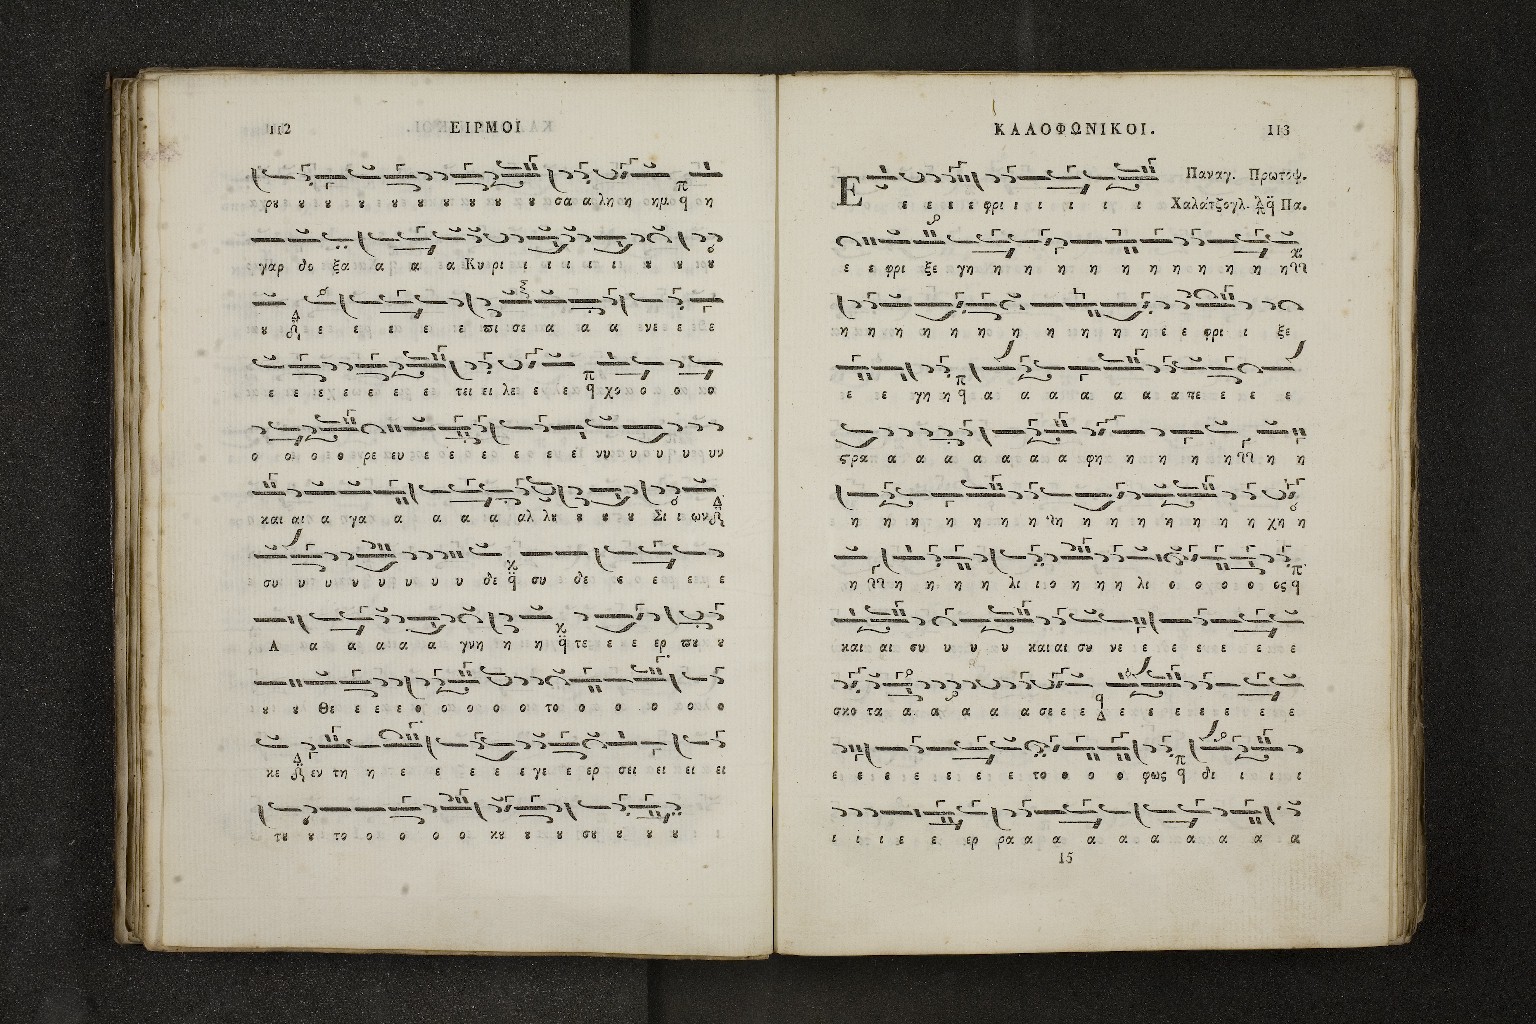 112 ΕΙΡΜΟΙ
ρȣ ȣ ȣ ȣ ȣ ȣ ȣ ȣ ȣ ȣ ȣ σα α λη η ημ η
γαρ δο ξα α α α Κυ ρι ι ι ι ι ι ȣ ȣ ȣ
ȣ ε ε ε ε ε ε πι σε α α α νε ε ε
ε ε ε ε ε ε ε τει ει λε ε ε χο ο ο ο ο
ο ο ο θ ρε ευ ε ε ε ε ε ε ε νυ υ υ υ υ υν
και αι α γα α α α α αλ λȣ ȣ ȣ ȣ Σι ι ων
συ υ υ υ υ υ υ υ δε συ δε ε ε ε ε ε
Α α α α α α γνη η η η τε ε ε ερ πȣ ȣ
ȣ ȣ Θε ε ε ε ο ο ο ο ο το ο ο ο ο ο
κε εν τη η ε ε ε ε ε γε ε ερ σει ει ει ει
τȣ ȣ το ο ο ο ο κȣ ȣ ȣ σȣ ȣ ȣ ȣ
ΚΑΛΟΦΩΝΙΚΟΙ. 113
Παναγ. Πρωτοψ.
Ε ε ε ε ε φρι ι ι ι ι ι Χαλάτζογλ. Πα.
ε ε φρι ξε γη η η η η η η η η η η η
η η η η η η η η η η η ε ε φρι ι ξε
ε ε γη η α α α α α α α πε ε ε ε
ϛρα α α α α α α α φη η η η η η η
η η η η η η η η η η η η η χη η
η η η η η λι ι ο η η η λι ο ο ο ο ος
και αι συ υ υ υ και αι συ νε ε ε ε ε ε ε
σκο τα α α α α α σε ε ε ε ε ε ε ε ε ε
ε ε ε ε ε ε ε ε το ο ο ο φως δι ι ι ι
ι ι ι ε ε ερ ρα α α α α α α α α α
15